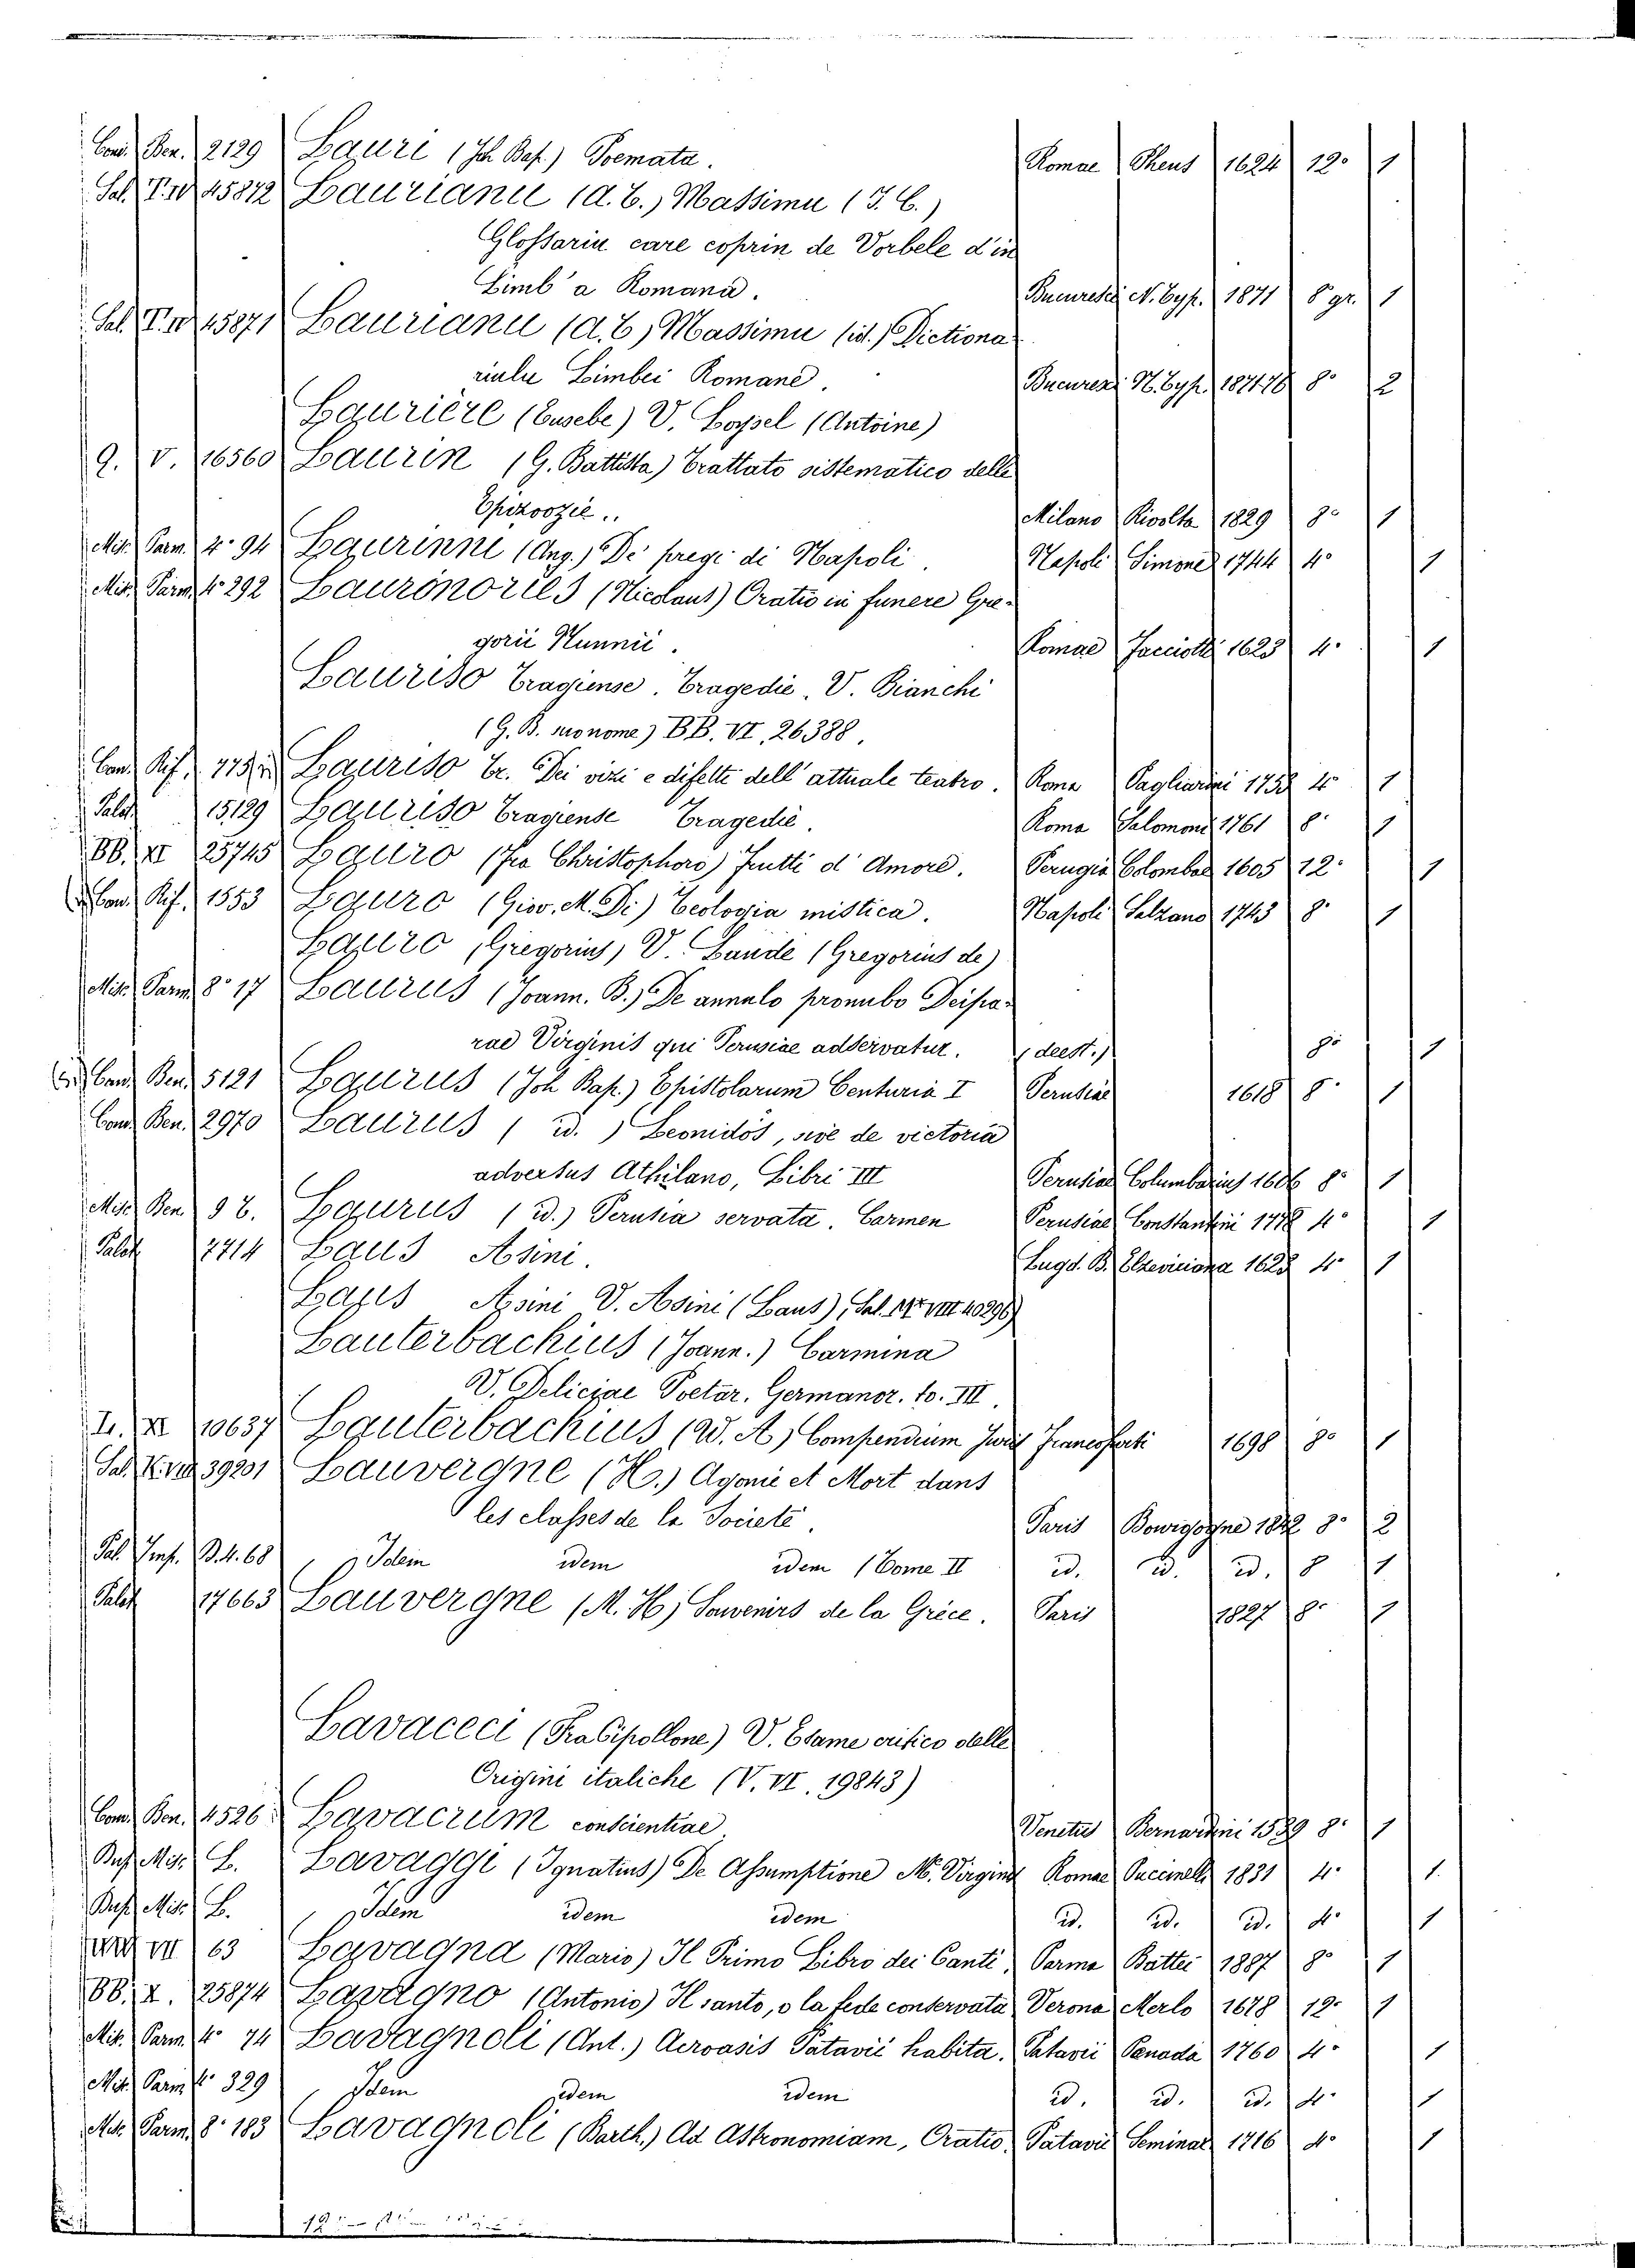 Cons. Ben. 2129 Lauri (Joh. Bap.) Poemata. Romae Theus 1624 12° 1
Sal. T. IV 45872 Laurianu (A. C.) Massimu (I. C.)
Glossariu care coprin de Vorbele d'in
Limb'a Romana. Bucuresci N. Typ. 1871 8 gr. 1
Sal. T. IV 45871 Laurianu (A. C.) Massimu (id.) Dictiona
riulu Limbei Romane. Bucuresi N. Typ. 1871-76 8° 2
Laurière (Eusebe) V. Loysel (Antoine)
Q. V. 16560 Laurin (G. Battista) Trattato sistematico delle
Epizoozie.. Milano Rivolta 1829 8° 1
Mis. Parm. 4° 94 Laurinni (Ang.) De' pregi di Napoli. Napoli Simone 1744 4° 1
Mis. Parm. 4° 292 Laurónorius (Nicolaus) Oratio in funere Gre-
gorii Nunnii. Romae Facciotti 1625 4° 1
Lauriso Tragiense. Tragedie. V. Bianchi
(G. B. monome) BB. VI. 26388.
Cons. Rif. 775 Lauriso Tr. Dei vizi e difetti dell'attuale teatro. Roma Pagliarini 1753 4° 1
Palat. 15129 Lauriso Tragiense Tragedie. Roma Salomoni 1761 8° 1
BB. VI 25745 Lauro (Fra Christophoro) Frutti d'Amore. Perugia Colombar 1605 12° 1
Cons. Rif. 1553 Lauro (Giov. M. Di) Teologia mistica. Napoli Salzano 1743 8° 1
Lauro (Gregorius) V. Laude (Gregorius de)
Mis. Parm. 8° 17 Laurus (Joann. B.) De annulo pronubo Deipa-
rae Virginis qui Perusiae adservatur. (deest.) 8° 1
Cons. Ben. 5121 Laurus (Joh. Bap.) Epistolarum Centuria I Perusiae 1618 8° 1
Cons. Ben. 2970 Laurus (id.) Leonidos, sive de victoria
adversus Athilano, Libri III Perusiae Columbarius 1606 8° 1
Misc. Ben. 9 C. Laurus (id.) Perusia servata. Carmen Perusiae Constantini 1778 4° 1
Palat. 7714 Laus Asini. Lugd. B. Elzeviriana 1623 4° 1
Laus Asini V. Asini (Laus), Sal. VIII 40296
Lauterbachius (Joann.) Carmina
V. Deliciae Poetar. Germanor. to. III.
L. XI 10637 Lauterbachius (W. A.) Compendium Juris Francoforti 1698 8° 1
Sal. K. VIII 39201 Lauvergne (H.) Agonie et Mort dans
les classes de la Societé. Paris Bourgogne 1842 8° 2
Sal. Imp. B. 4. 68 Idem idem idem (Tome II id. id. id. 8 1
Palat. 17663 Lauvergne (M. H.) Souvenirs de la Grèce. Paris 1827 8° 1
Lavaceci (Fra Cipollone) V. Esame critico delle
Origini italiche (V. VI. 19843)
Cons. Ben. 4526 Lavacrum conscientiae. Venetiis Bernardini 1589 8° 1
Buf. Mis. L. Lavaggi (Ignatius) De Assumptione M. Virginis Romae Puccinelli 1831 4° 1.
Buf. Mis. L. Idem idem idem id. id. id. 4° 1
VII 63 Lavagna (Mario) Il Primo Libro dei Canti. Parma Battei 1887 8° 1
BB. X. 25874 Lavagno (Antonio) Il santo, o la fede conservata Verona Merlo 1678 12° 1
Mis. Parm. 4° 74 Lavagnoli (Ant.) Acroasis Patavii habita. Patavii Penada 1760 4° 1
Mis. Parm. 4° 329 Idem idem idem id. id. id. 4° 1
Mis. Parm. 8° 183 Lavagnoli (Barth.) Ad Astronomiam, Oratio. Patavii Seminar. 1716 4° 1